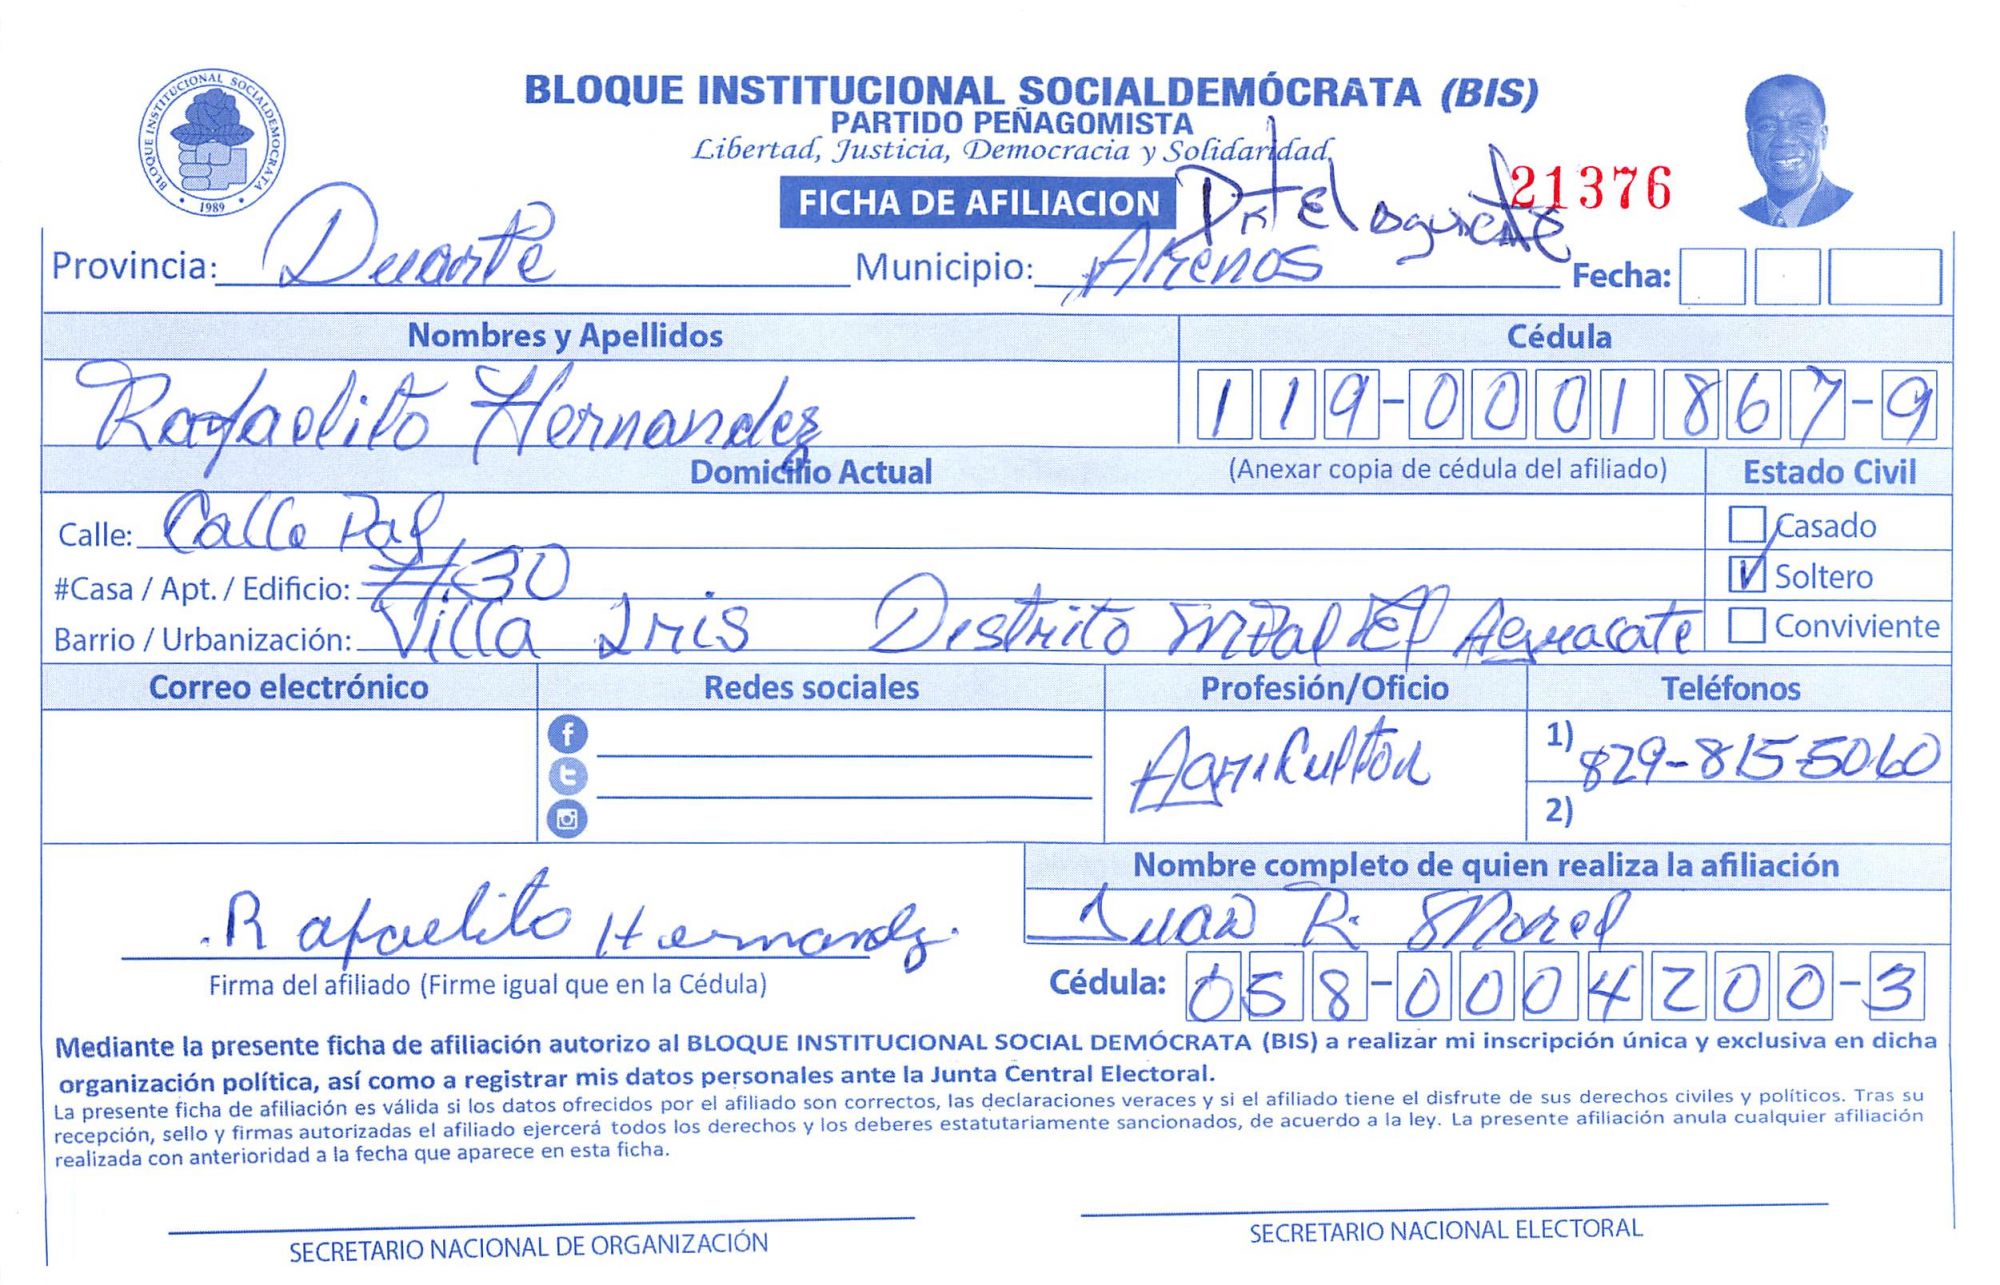 BLOQUE INSTITUCIONAL SOCIALDEMÓCRATA (BIS)
PARTIDO PEÑAGOMISTA
Libertad, Justicia, Democracia y Solidaridad
BLOQUE INSTITUCIONAL SOCIALDEMOCRATA
1989
FICHA DE AFILIACION
21376
El aguacate
Provincia: Duarte Municipio: Arenos Fecha:
Nombres y Apellidos Cédula
Rafaelito Hernandez 119-0001867-9
Domicilio Actual (Anexar copia de cédula del afiliado) Estado Civil
Calle: Calle Casado
#Casa / Apt. / Edificio: #30 Soltero
Barrio / Urbanización: Villa Iris Distrito El Aguacate Conviviente
Correo electrónico Redes sociales Profesión/Oficio Teléfonos
Agricultor 1) 829-815-5060
2)
Nombre completo de quien realiza la afiliación
Rafaelito Hernandez Juan R. Morel
Firma del afiliado (Firme igual que en la Cédula) Cédula: 058-0004200-3
Mediante la presente ficha de afiliación autorizo al BLOQUE INSTITUCIONAL SOCIAL DEMÓCRATA (BIS) a realizar mi inscripción única y exclusiva en dicha
organización política, así como a registrar mis datos personales ante la Junta Central Electoral.
La presente ficha de afiliación es válida si los datos ofrecidos por el afiliado son correctos, las declaraciones veraces y si el afiliado tiene el disfrute de sus derechos civiles y políticos. Tras su
recepción, sello y firmas autorizadas el afiliado ejercerá todos los derechos y los deberes estatutariamente sancionados, de acuerdo a la ley. La presente afiliación anula cualquier afiliación
realizada con anterioridad a la fecha que aparece en esta ficha.
SECRETARIO NACIONAL DE ORGANIZACIÓN SECRETARIO NACIONAL ELECTORAL